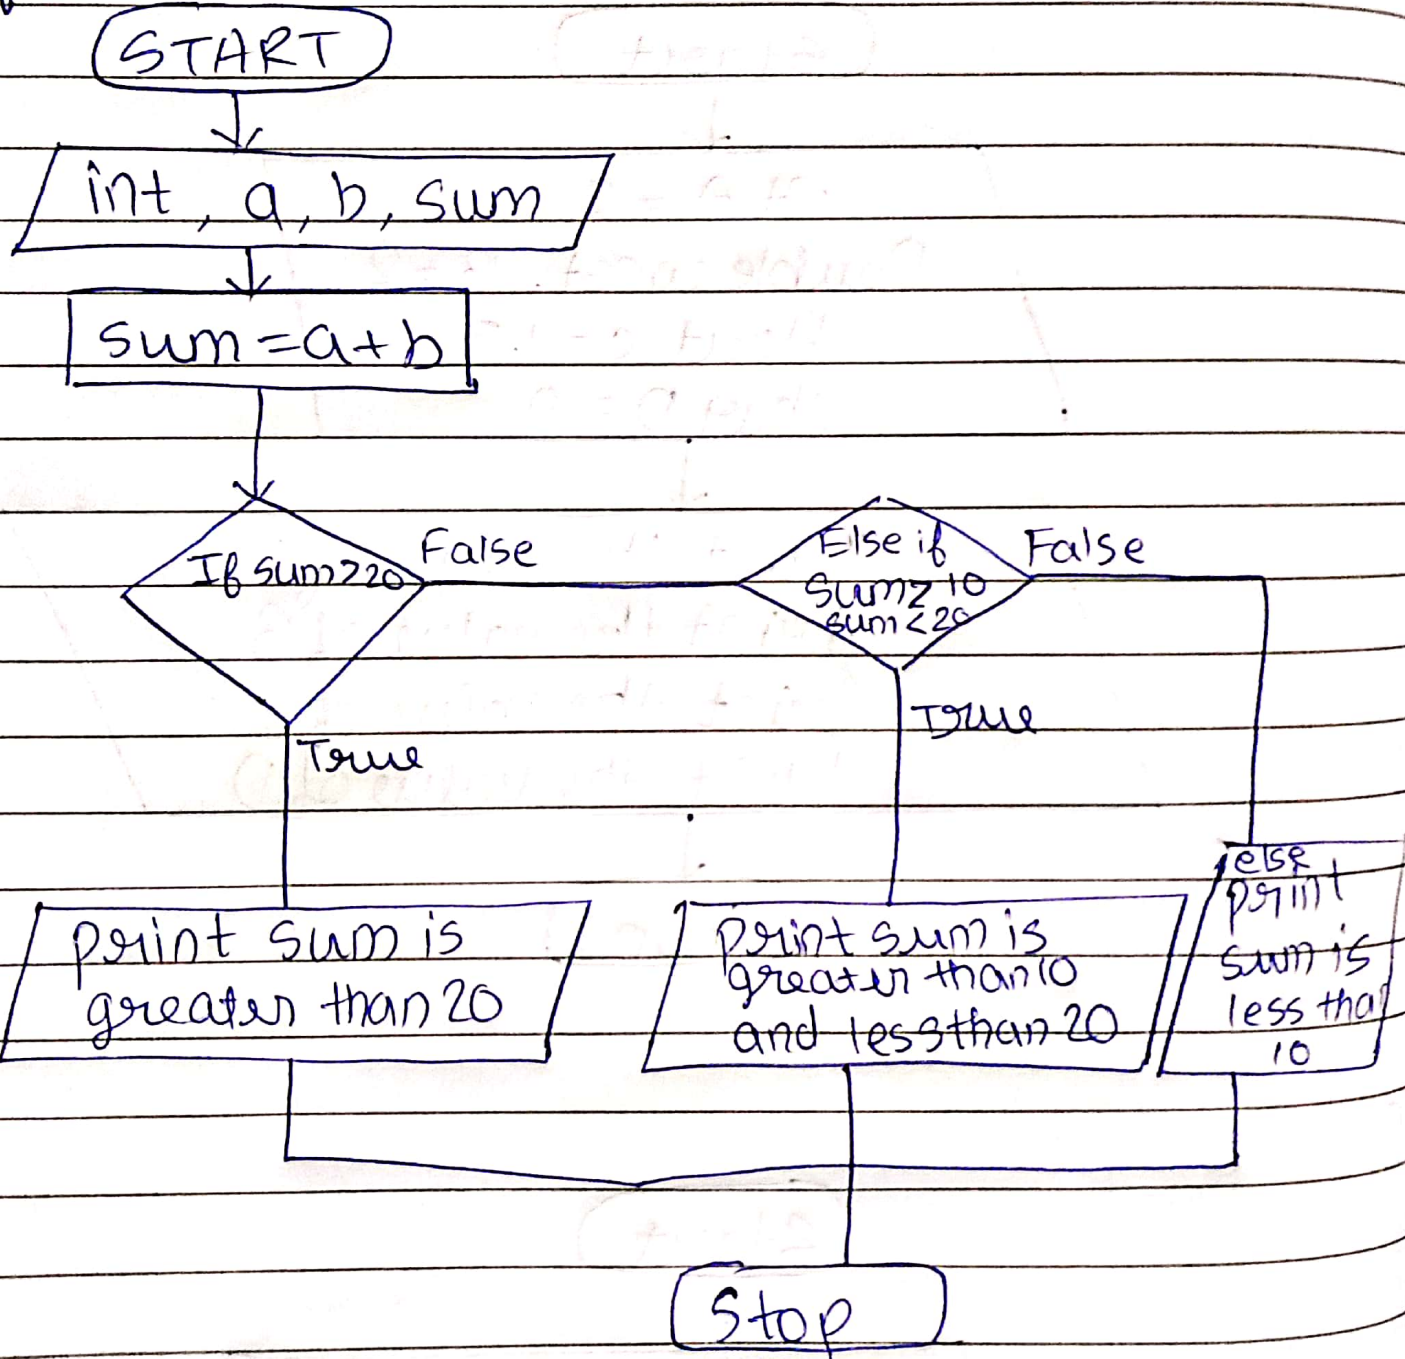 START
int, a, b, sum
sum=a+b
If sum>20
False
Else if
sum> 10
sum<20
False
True
True
print sum is
greater than 20
print sum is
greater than 10
and less than 20
else
print
sum is
less tha
10
Stop